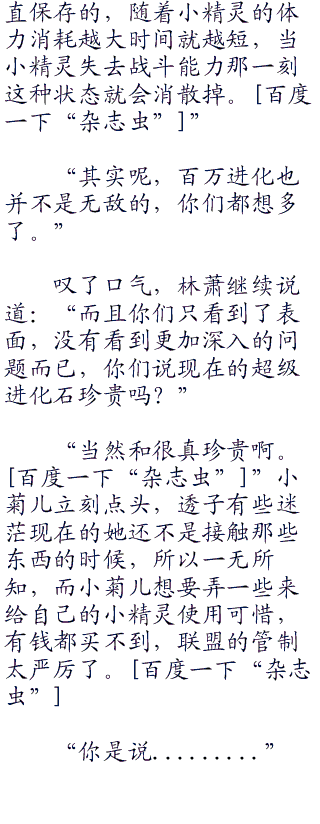 直保存的，随着小精灵的体
力消耗越大时间就越短，当
小精灵失去战斗能力那一刻
这种状态就会消散掉。[百度
一下“杂志虫”]”
“其实呢，百万进化也
并不是无敌的，你们都想多
了。”
叹了口气，林萧继续说
道：“而且你们只看到了表
面，没有看到更加深入的问
题而已，你们说现在的超级
进化石珍贵吗？”
“当然和很真珍贵啊。
[百度一下“杂志虫”]”小
菊儿立刻点头，透子有些迷
茫现在的她还不是接触那些
东西的时候，所以一无所
知，而小菊儿想要弄一些来
给自己的小精灵使用可惜，
有钱都买不到，联盟的管制
太严厉了。[百度一下“杂志
虫”]
“你是说.........”